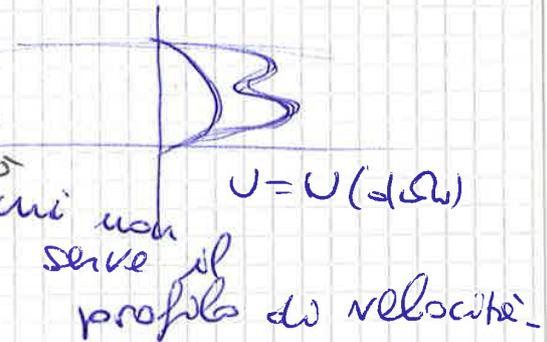 U = U(dΩ)
non
serve il
profilo di velocità.